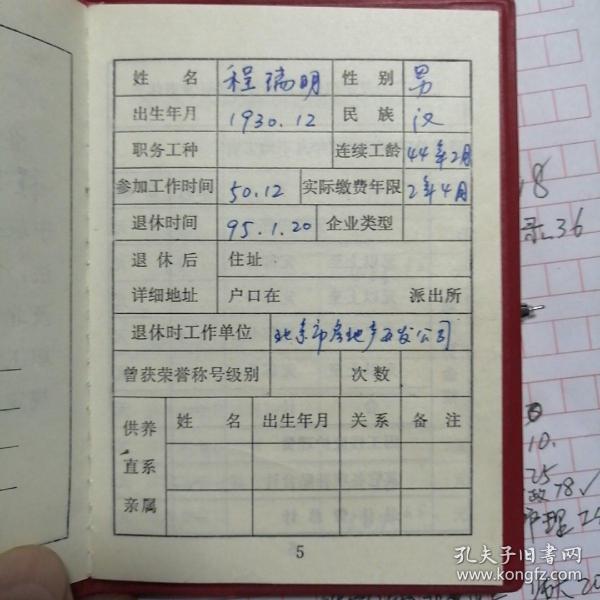 姓 名 程瑞明 性 别 男
出生年月 1930.12 民 族 汉
职务工种 连续工龄 44年2月
参加工作时间 50.12 实际缴费年限 2年4月
退休时间 95.1.20 企业类型
退 休 后 住址
详细地址 户口在 派出所
退休时工作单位 北京市房地产开发公司
曾获荣誉称号级别 次数
供养 姓 名 出生年月 关系 备 注
直系
亲属
5
18
录36
10.
25
政78✓
孔夫子旧书网
www.kongfz.com